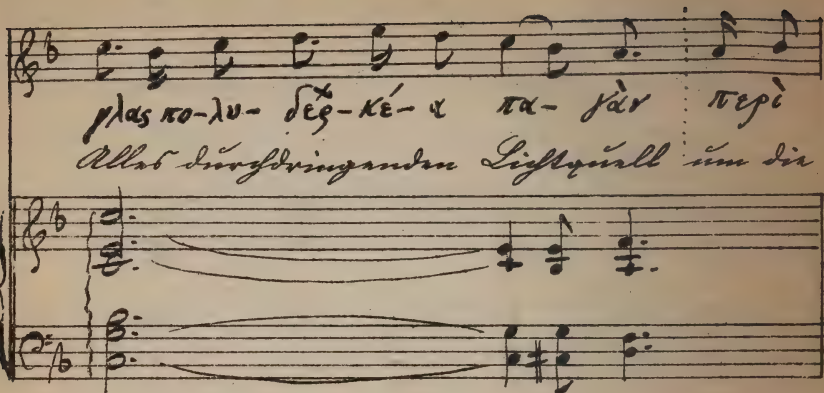 γλας πο-λυ- δερ-κέ-α πα- γὰν περὶ
Alles durchdringenden Lichtquell um die